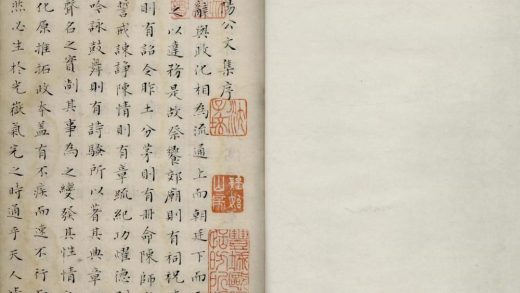 楊公文集序
辭與政化相為流通上而朝廷下而
之以達務是故祭饗郊廟則有祠祝
則有詔令胙土分茅則有冊命陳師
誓戒諫諍陳情則有章疏紀功燿德
吟詠鼓舞則有詩騷所以著其典章
聲名之實制其事為之變發其性情
化原推拓政本蓋有不疾而速不行
然必生於光嶽氣完之時通乎天人